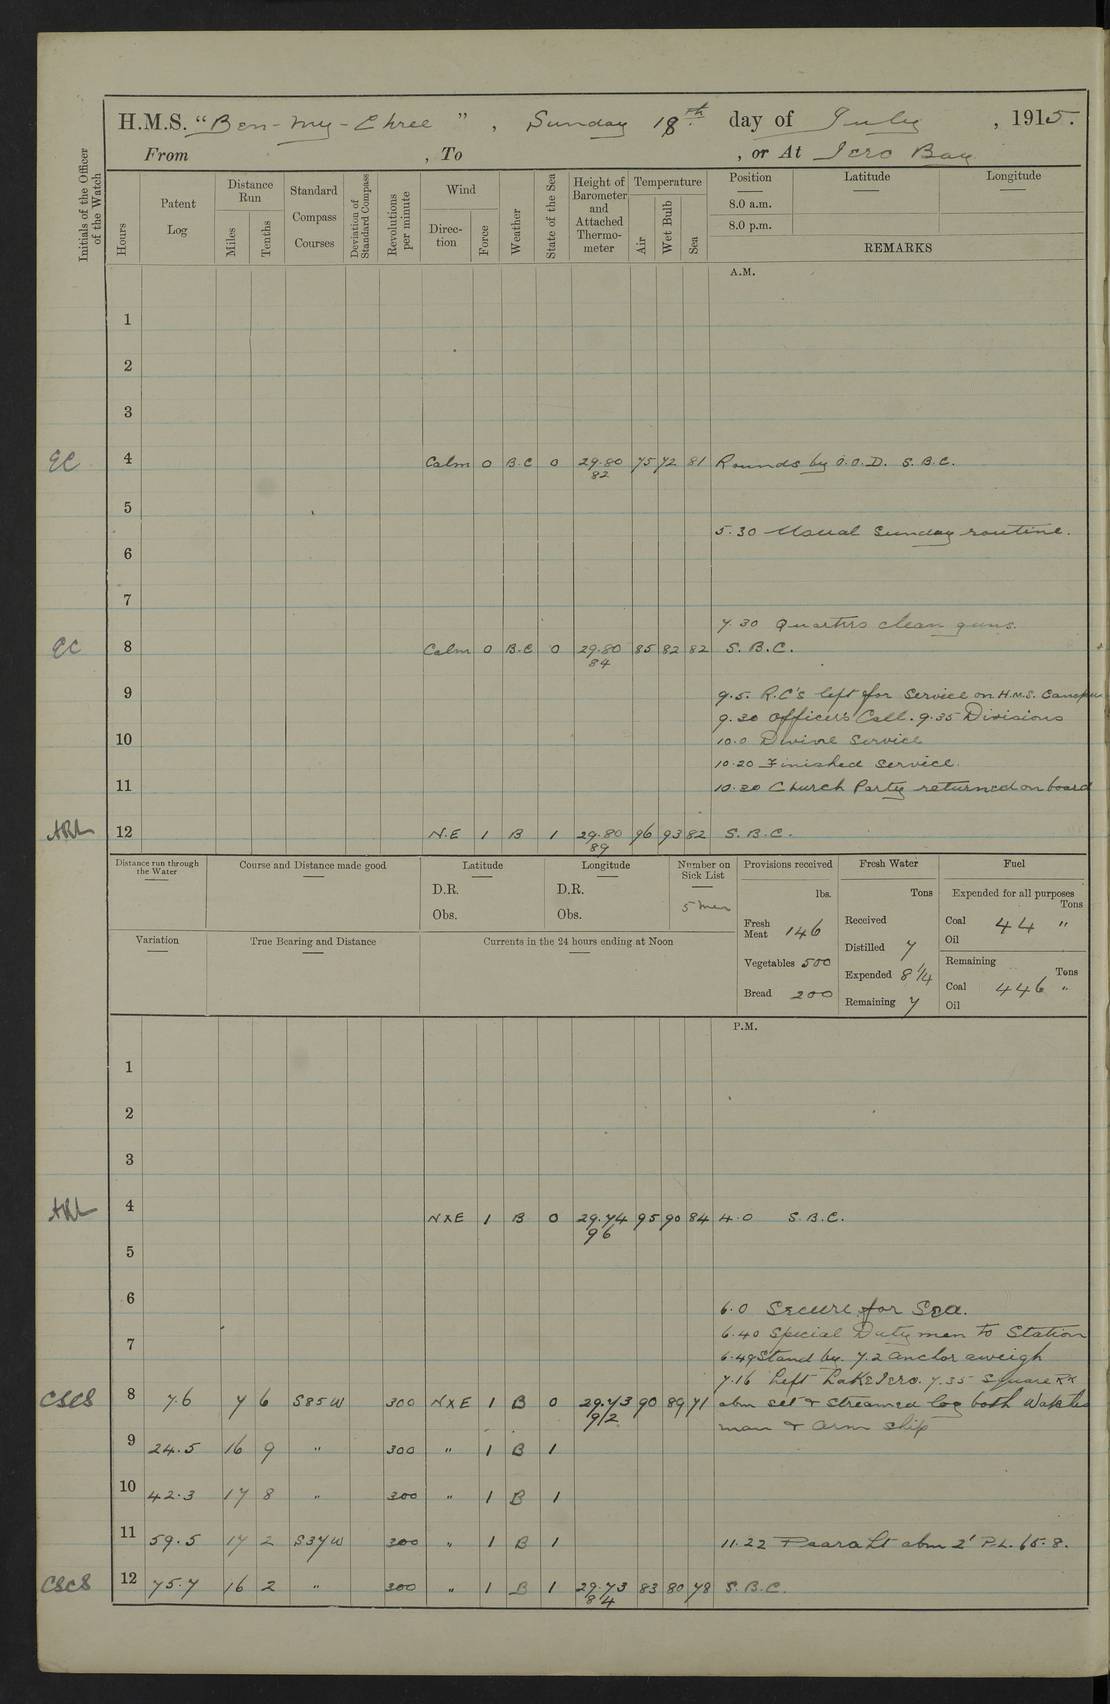 H.M.S. "Ben-my-Chree", Sunday 18th day of July, 1915.
From , To , or At Iero Bay
Initials of the Officer of the Watch
Hours
Patent Log
Distance Run
Miles
Tenths
Standard Compass Courses
Deviation of Standard Compass
Revolutions per minute
Wind
Direction
Force
Weather
State of the Sea
Height of Barometer and Attached Thermometer
Temperature
Air
Wet Bulb
Sea
Position Latitude Longitude
8.0 a.m.
8.0 p.m.
REMARKS
A.M.
1
2
3
EC 4 Calm 0 B.C 0 29.80 75 72 81 Rounds by O.O.D. S.B.C.
82
5
5.30 Usual Sunday routine.
6
7
7.30 Quarters clean guns.
EC 8 Calm 0 B.C 0 29.80 85 82 82 S.B.C.
84
9 9.5. R.C's left for Service on H.M.S. Canopus
9.30 Officers' Call. 9.35 Divisions
10 10.0 Divine Service
10.20 Finished Service.
11 10.30 Church Party returned on board
ARL 12 N.E 1 B 1 29.80 96 93 82 S.B.C.
89
Distance run through the Water
Course and Distance made good
Latitude
D.R.
Obs.
Longitude
D.R.
Obs.
Number on Sick List
5 men
Provisions received
lbs.
Fresh Meat 146
Vegetables 500
Bread 200
Fresh Water
Tons
Received
Distilled 7
Expended 8 1/4
Remaining 7
Fuel
Expended for all purposes
Tons
Coal 44 "
Oil
Remaining
Tons
Coal 446 "
Oil
Variation
True Bearing and Distance
Currents in the 24 hours ending at Noon
P.M.
1
2
3
ARL 4 NXE 1 B 0 29.74 95 90 84 4.0 S.B.C.
96
5
6 6.0 Secure for Sea.
6.40 Special Dutymen to Station
7 6.49 Stand by. 7.2 anchor aweigh
7.16 Left Lake Iero. 7.35 Square Rk
CSCS 8 7.6 7 6 S85W 300 NXE 1 B 0 29.73 90 89 71 abm set & streamed log both
92
man & arm ship
9 24.5 16 9 " 300 " 1 B 1
10 42.3 17 8 " 300 " 1 B 1
11 59.5 17 2 S37W 300 " 1 B 1 11.22 Lt abm 2' P.L. 65.8.
CSCS 12 75.7 16 2 " 300 " 1 B 1 29.73 83 80 78 S.B.C.
84